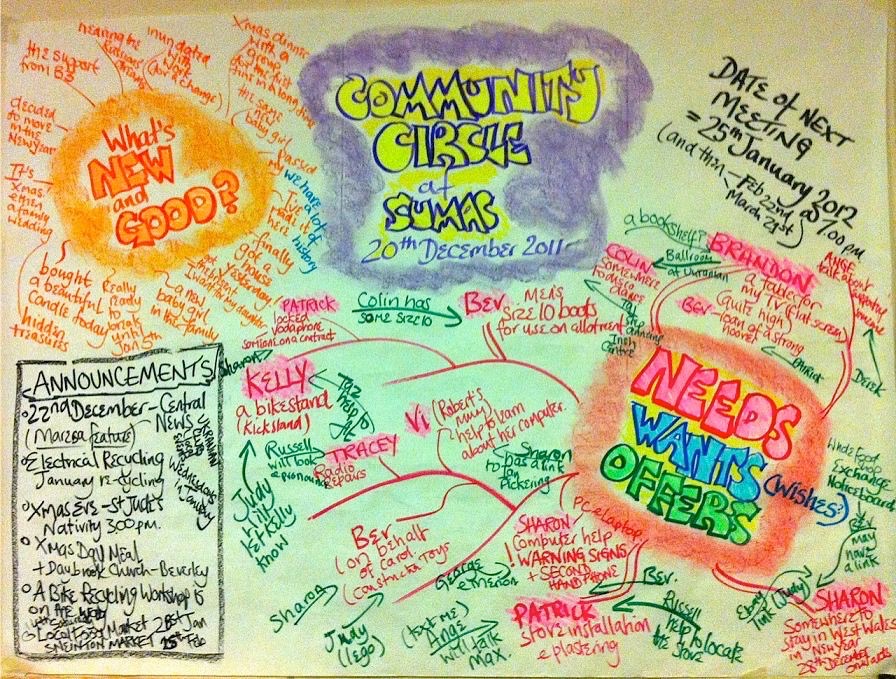 the support
from B3
hearing the
inundated
with
work
(for a change)
Xmas dinner
with a
group
for the first
time in a long time
the same
new
baby girl
decided
to move
in the
New Year
It's
Xmas
& then
a family
wedding
What's
NEW
and
GOOD?
we have a lot
of
history
here
finally
got a
house
yesterday!
a new
baby girl
in the family
Really
ready
to
break
until
Jan 5th
bought
a beautiful
candle today
hidden
treasures
COMMUNITY
CIRCLE
at
SUMAC
20th December 2011
DATE of NEXT
MEETING
= 25th January 2012
(and then - Feb 22nd @
March 21st) 7.00 pm
ANNOUNCEMENTS
22nd December - Central
News
(Marzea feature)
Electrical Recycling
January re-cycling
Wednesdays
in January
Xmas Eve - St Jude's
Nativity 3.00 pm.
Xmas Day Meal
+ Daybrook Church - Beverley
A Bike Recycling Workshop is
on the
Local Food Market 28th Jan
SNEINTON MARKET 25th Feb
PATRICK
locked
vodaphone
someone on a contract
Colin has
some size 10
Bev.
MENS
Size 10 boots
for use on allotment
Sharon
KELLY
a bikestand
(kickstand)
Judy
will
let Kelly
know
Russell
will look
TRACEY
Radio
Repairs
Vi
(Robert's
mum)
help to learn
about her computer.
Sharon
has a link
to Jan
Pickering
Bev
(on behalf
of Carol.
Constructa Toys
Sharon
Judy
(lego)
George
PC & laptop
SHARON
Computer help
! WARNING SIGNS
+ SECOND
HAND PHONE
(text me)
Ange
will talk
Max.
PATRICK
stove installation
& plastering
Bev.
Russell
help to locate
the stove
NEEDS
WANTS (wishes)
OFFERS
a bookshelf?
Ballroom
at Ukranian
COLIN
Somewhere
BRANDON
a table for
my TV (flat screen)
Quite high
Bev - loan of a strong
hoover
Patrick
Ange
talk
about
Derek
Exchange
Noticeboard
Bev
may
have
a link
Ebony
link (Judy)
SHARON
Somewhere to
stay in West Wales
in New Year
28th December
onwards